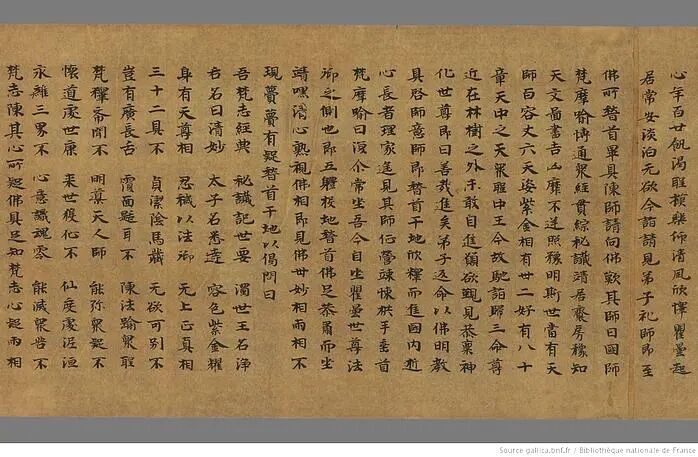 心年百廿飢渴聖模與師清風欣懌瞿曇起
居常安淡泊无欲今詣請見弟子礼師即至
佛所稽首畢具陳師請向佛歎其師曰國師
梵摩喻博通衆經貫綜秘讖靖居齋房豫知
天文圖書吉凶靡不逆照豫明斯世當有天
師百容丈六天姿紫金相有卅二好有八十
章天中之天衆聖中王今故馳詣歸三命尊
近在林樹之外不敢自進願欲覲見恭稟神
化世尊即曰善哉進矣弟子返命以佛明教
具啓師喜師即稽首于地欣釋而進國內逝
心長者理家逢見其師竦悚拱手垂首
梵摩喻曰尒常坐吾今自坐瞿曇世尊法
御之側也即五體投地稽首佛足恭肅而坐
靖嘿清心熟視佛相即見佛世妙相兩相不
現瞢瞢有疑稽首于地以偈問曰
吾梵志經典 祕讖記世要 濁世王石淨
右石曰清妙 太子名悉達 容色紫金耀
身有天尊相 忍穢以法御 无上正真相
三十二具不 貞潔陰馬藏 无欲可別不
豈有廣長舌 覆面舐耳不 陳法踰衆聖
梵釋希聞不 明尊天人師 能弥衆疑不
懷道處世康 来世獲化不 仙度處泥洹
永離三界不 心意識魂靈 能滅衆苦不
梵志陳其心所疑佛具足知梵志心疑兩相
Source gallica.bnf.fr / Bibliothèque nationale de France